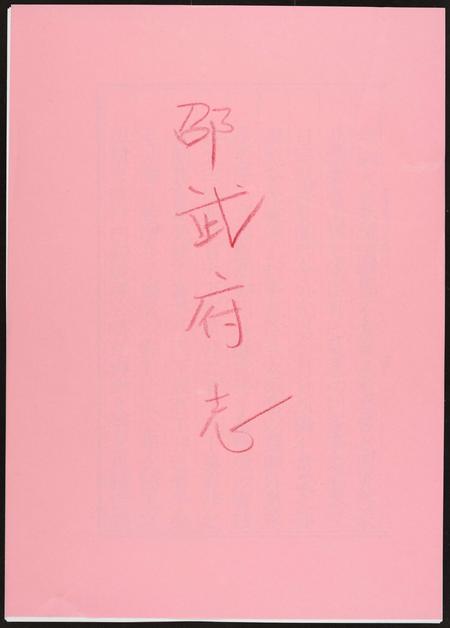 邵武府志